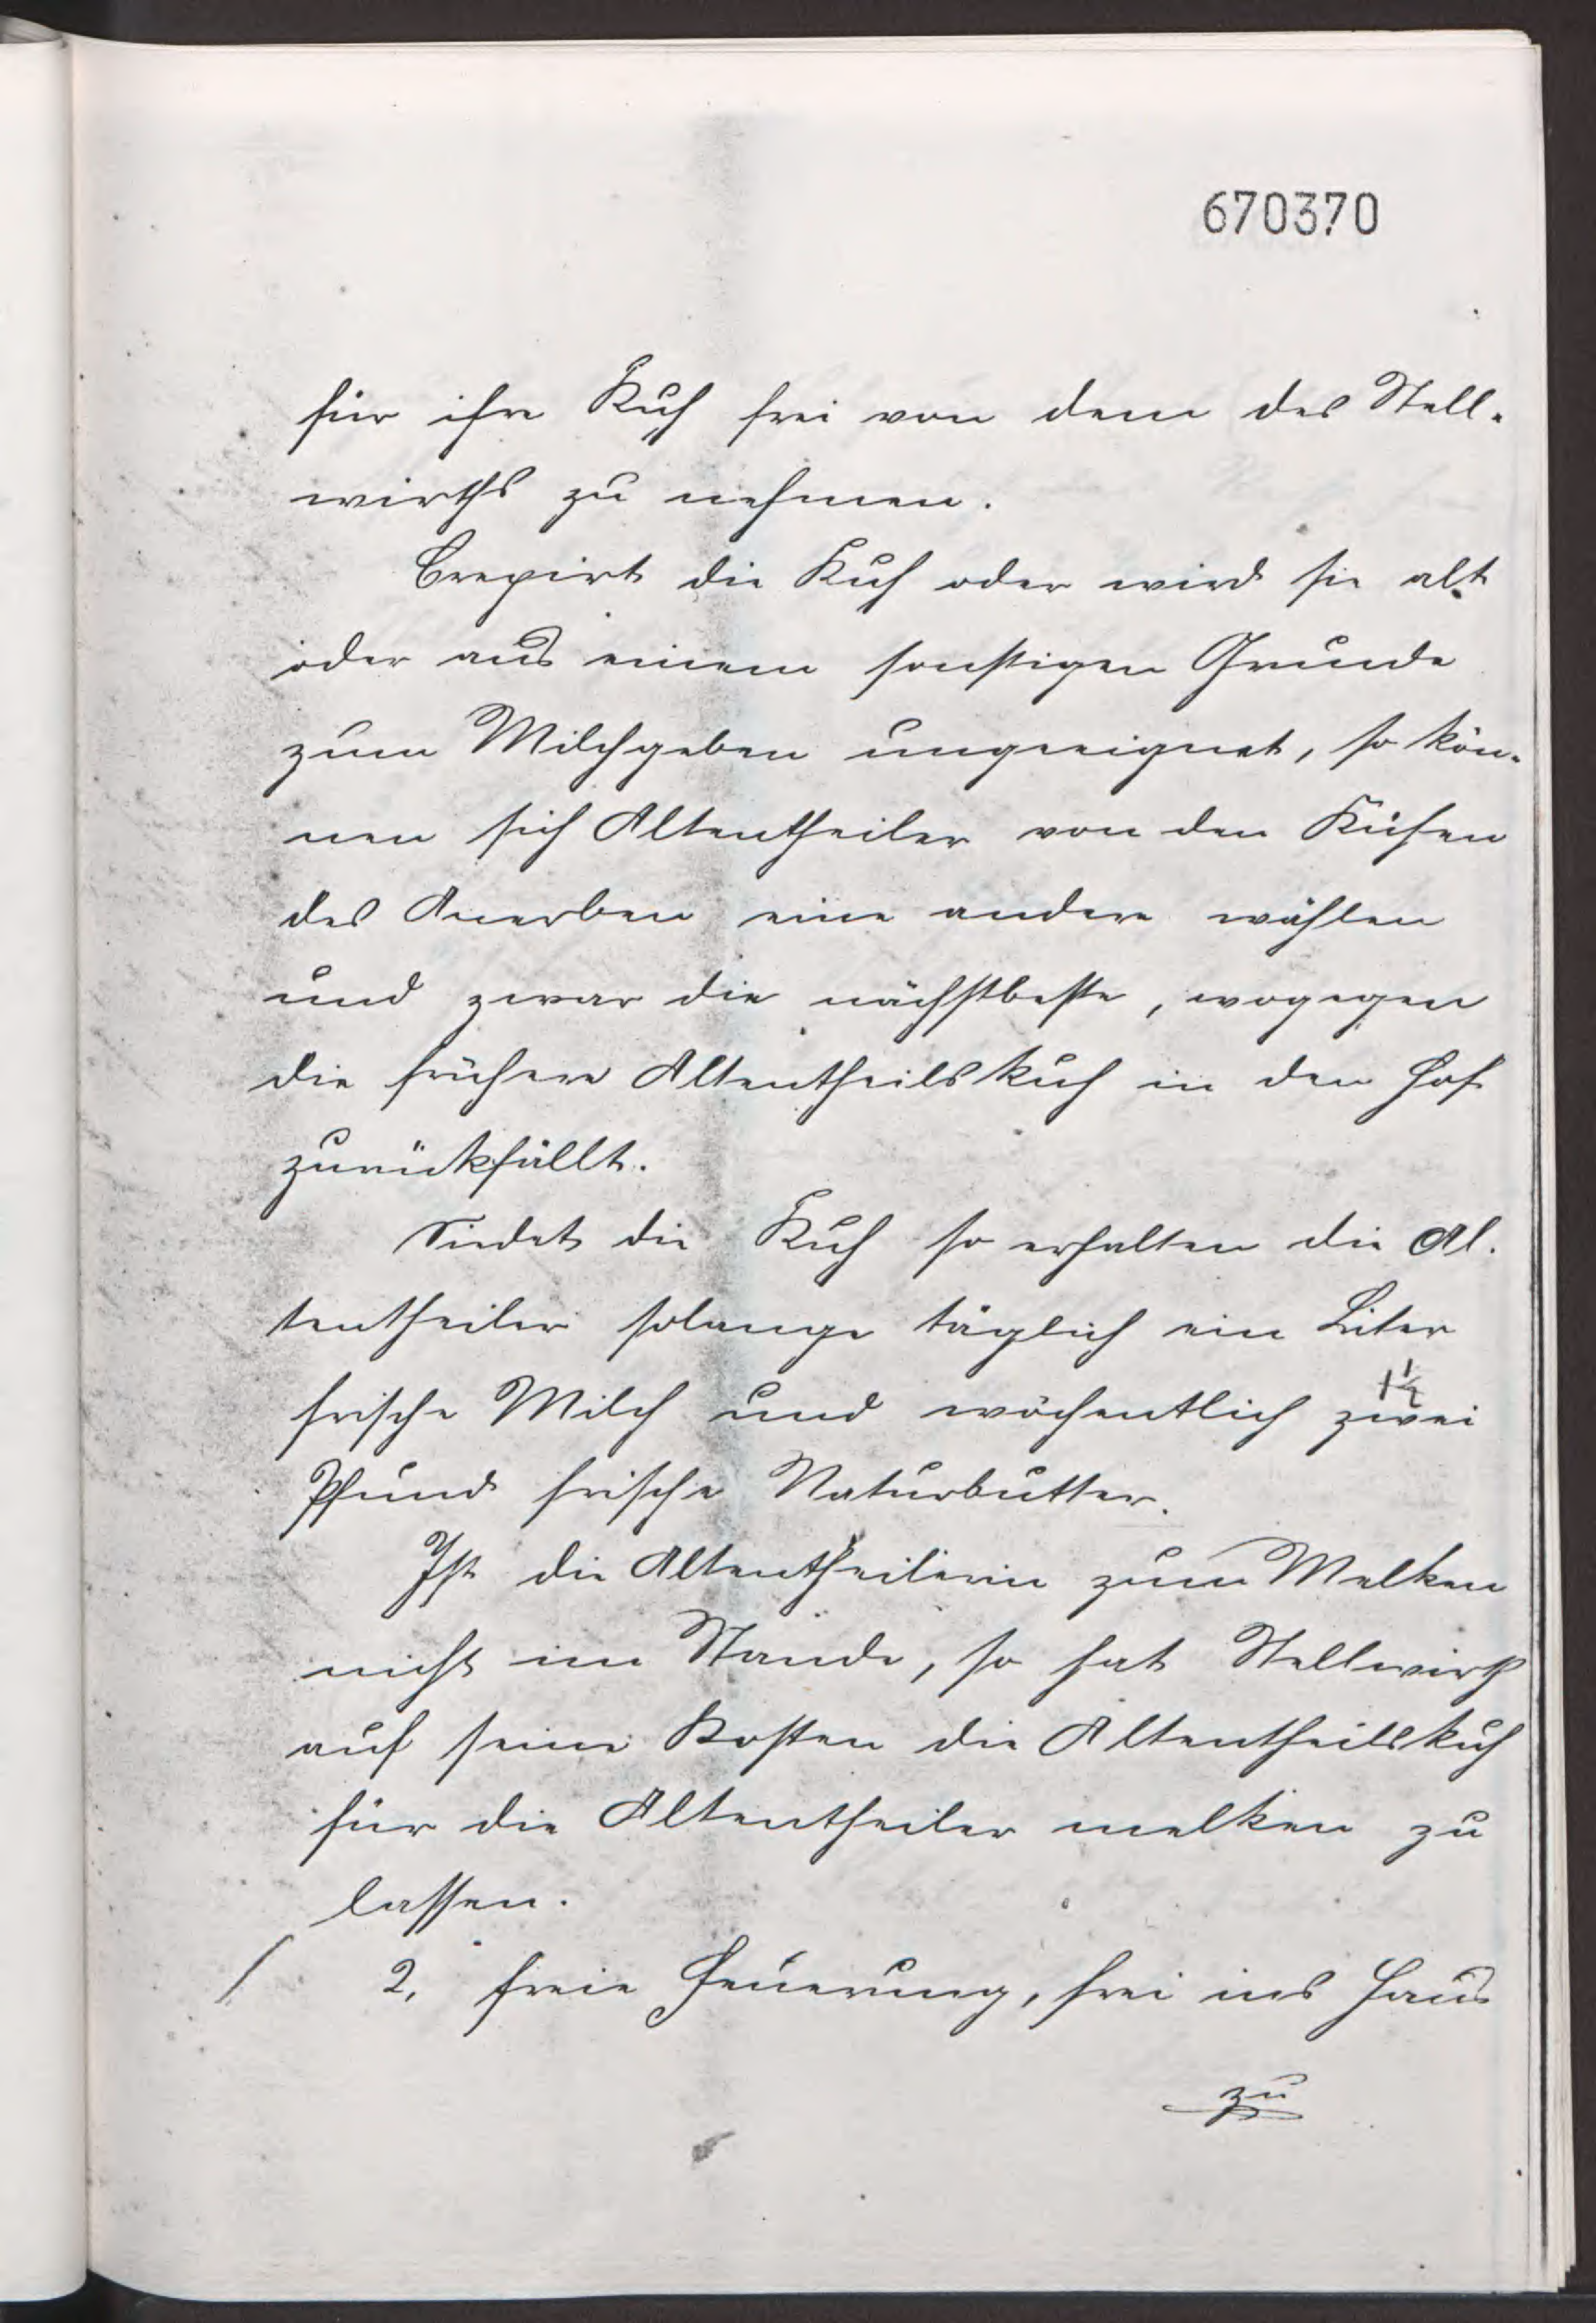 670370
für ihre Kuh frei von dem des Stell-
wirths zu nehmen.
Crepirt die Kuh oder wird sie alt
oder aus einem sonstigen Grunde
zum Milchgeben ungeeignet, so kön-
nen sich Altentheiler von den Kühen
des Anerben eine andere wählen
und zwar die nächstbeste, wogegen
die frühere Altentheilskuh in den Hof
zurückfällt.
die Kuh so erhalten die Al-
tentheiler solange täglich ein Liter
1½
frische Milch und wöchentlich zwei
Pfund frische Naturbutter.
Ist die Altentheilerin zum Melken
nicht im Stande, so hat Stellwirth
auf seine Kosten die Altentheilskuh
für die Altentheiler melken zu
lassen.
/ 2, freie Feuerung, frei ins Haus
zu